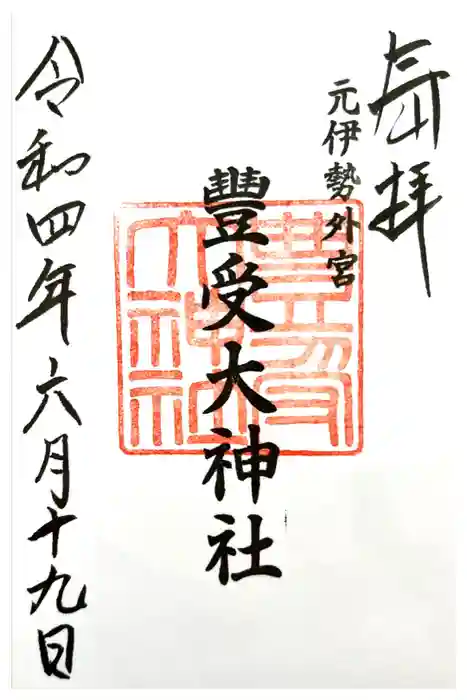 奉拝
元伊勢外宮
豊受大神社
豐受大神社
令和四年六月十九日